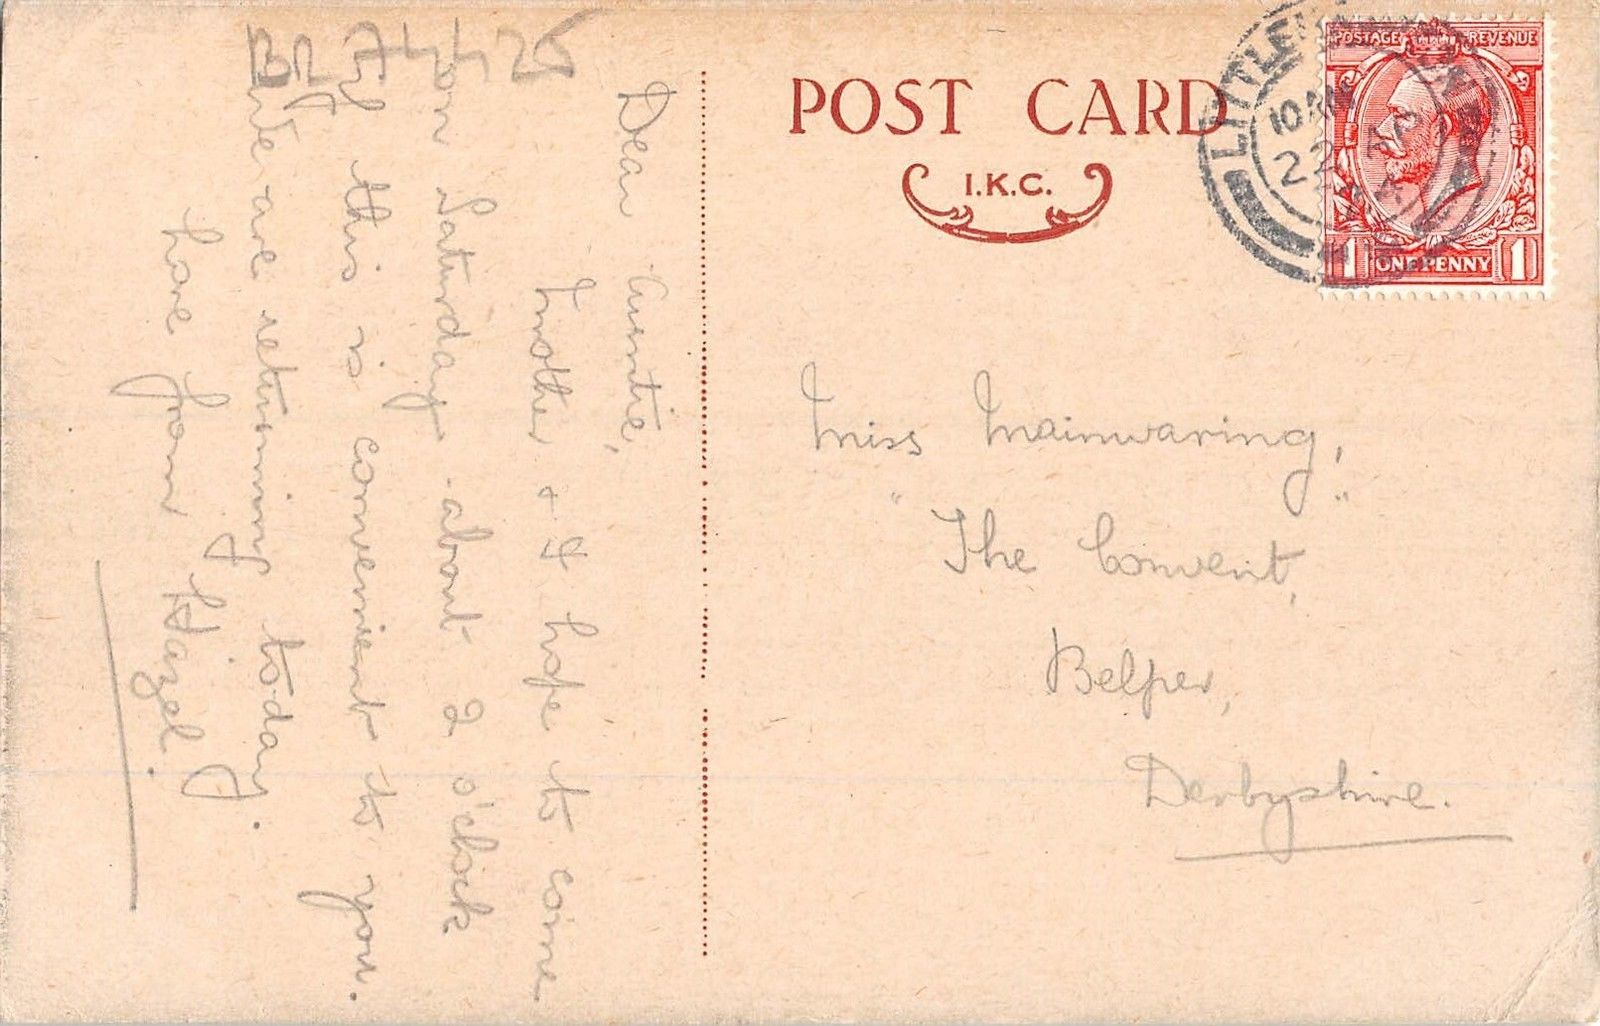 POST CARD
I.K.C.
POSTAGE REVENUE
1 ONE PENNY 1
10 AM
22
Miss Mainwaring,
"The Convent,"
Belper,
Derbyshire.
Dear Auntie,
Mother & I hope to come
on Saturday about 2 o'clock
If this is convenient to you.
We are returning today.
Love from Hazel.